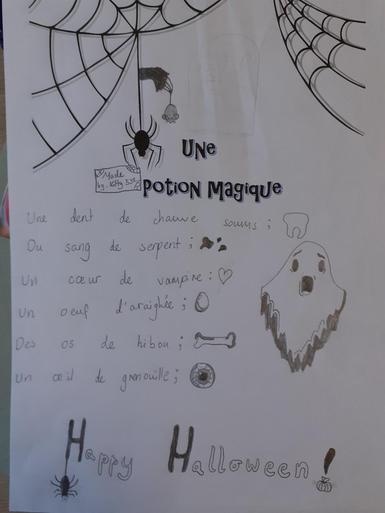 UNe
Made
by. Kitty
PotioN MagiQUe
Une dent de chauve souris ;
Du sang de serpent ;
Un cœur de vampire :
Un oeuf d'araighée ;
Des os de hibou ;
Un œil de grenouille ;
Happy Halloween !